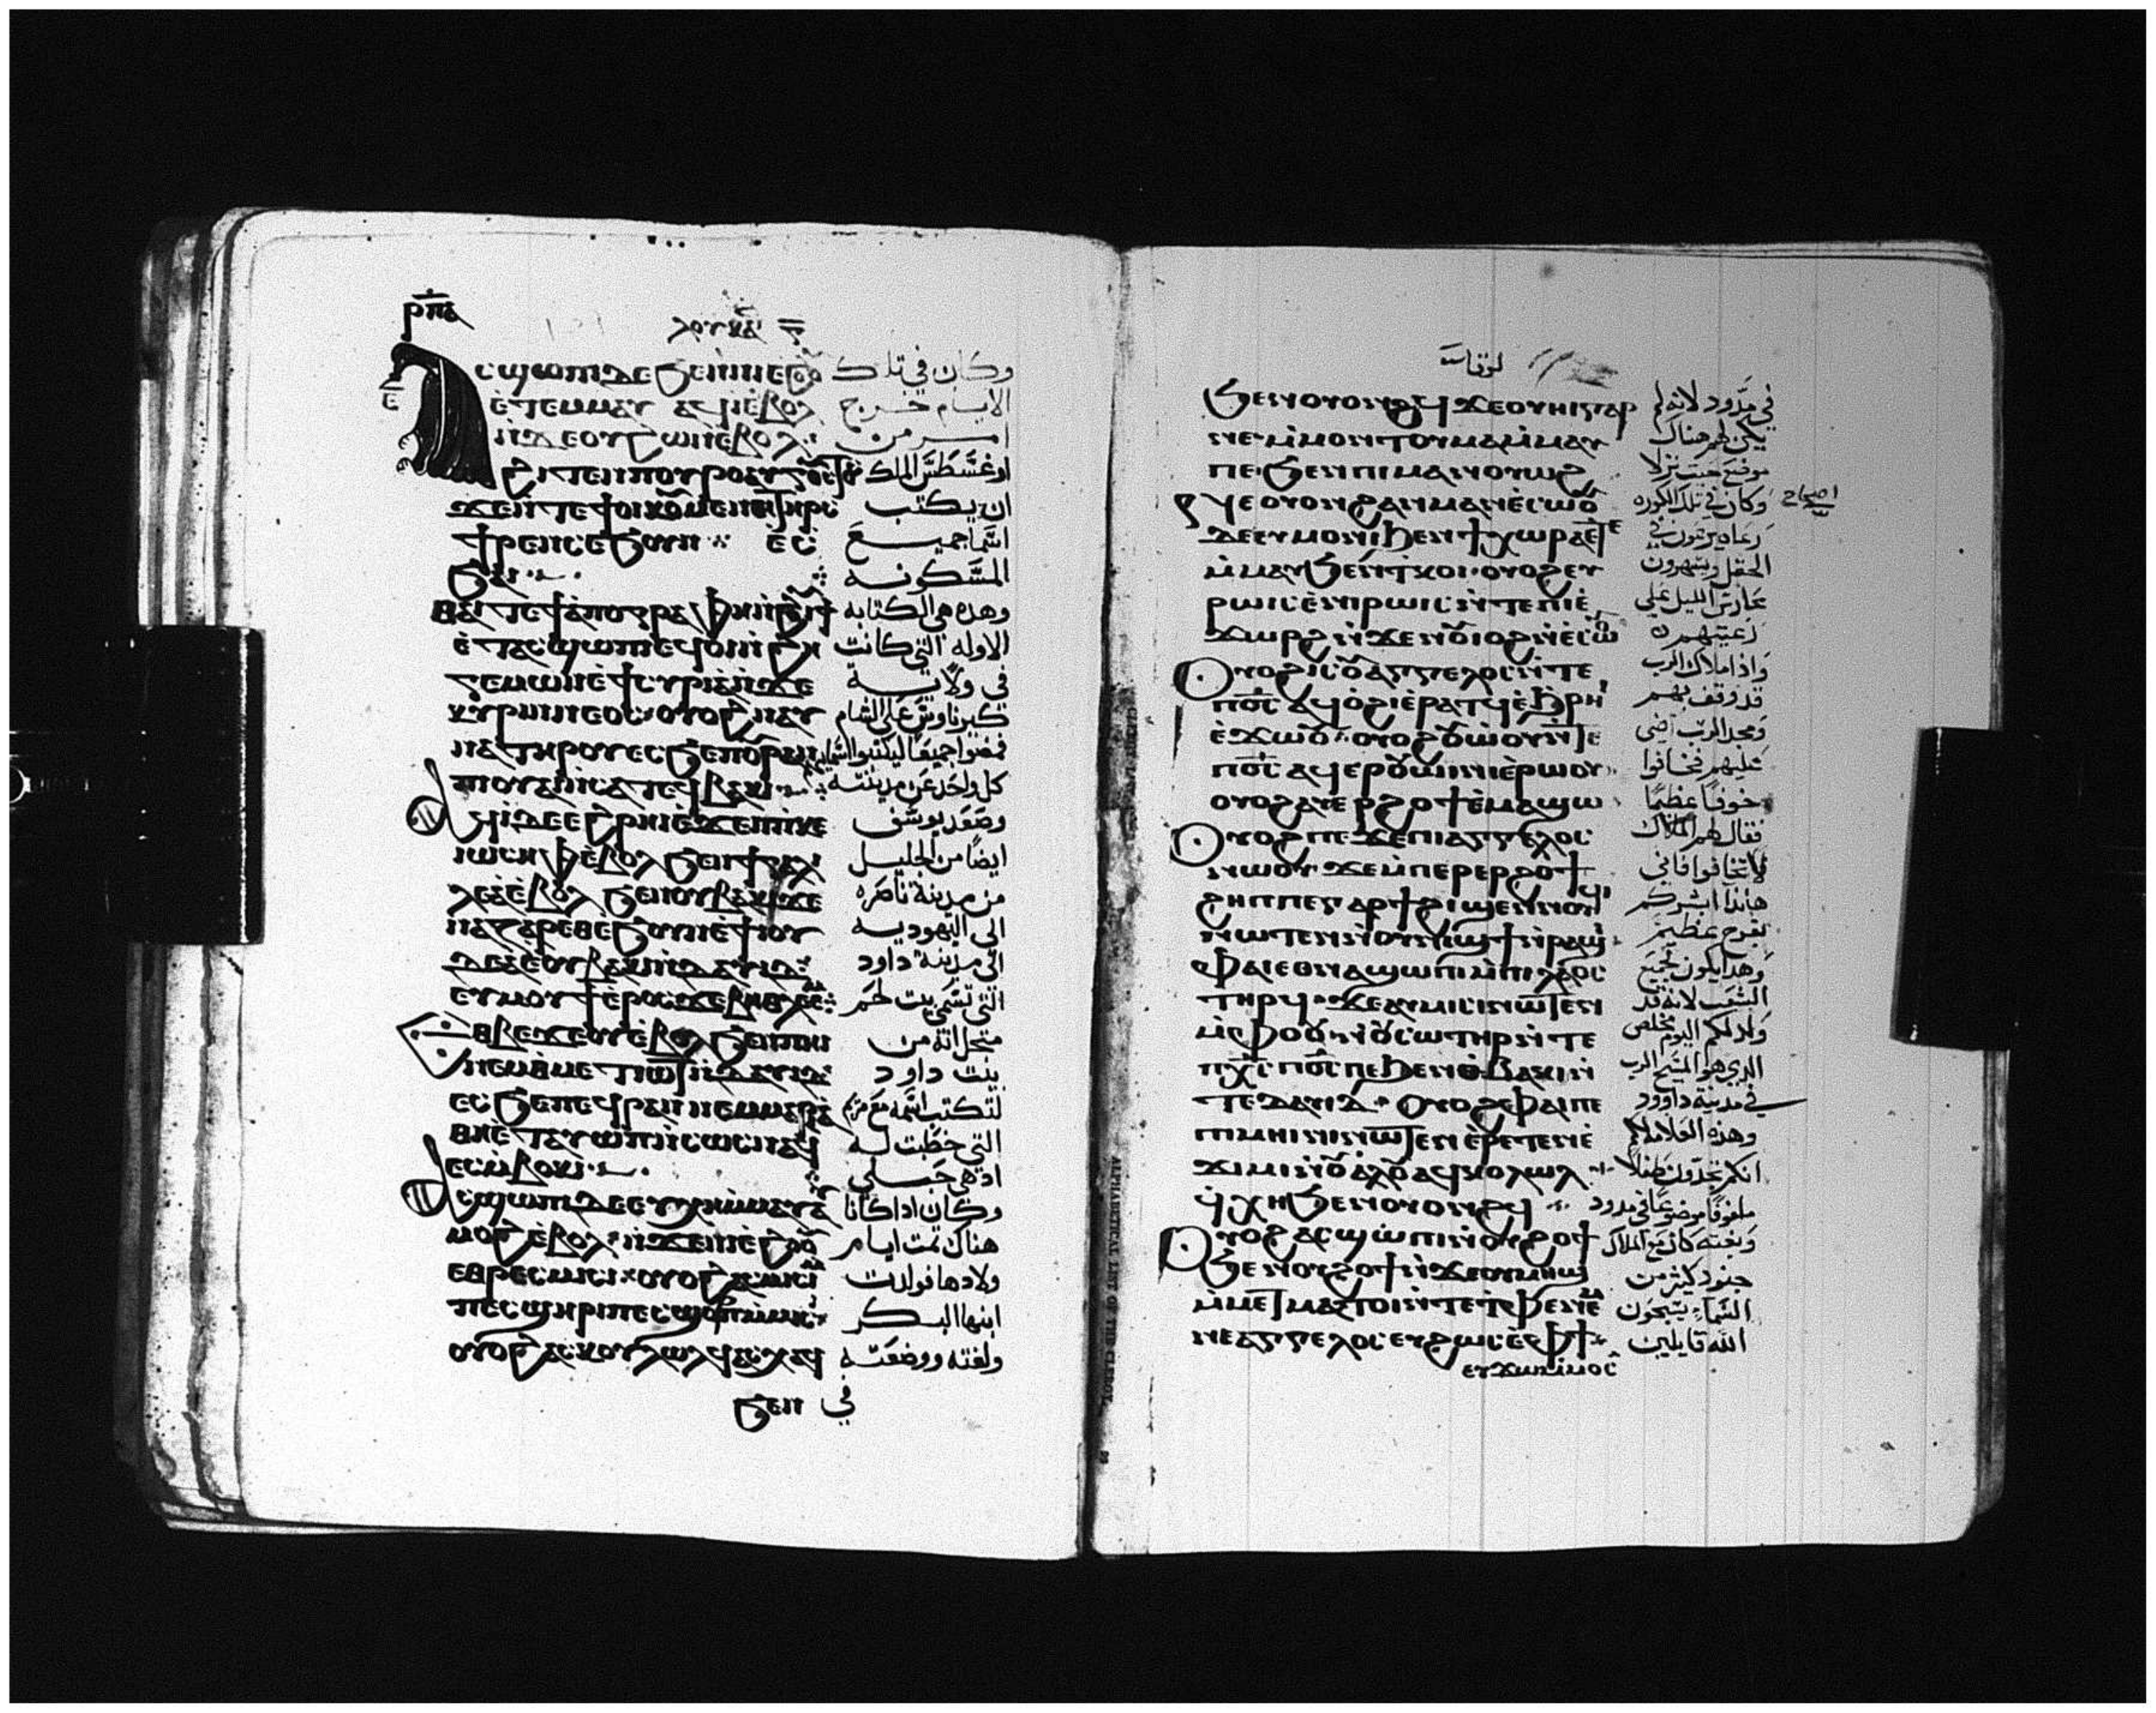 ⲣⲡⲁ
ⲗⲟⲩⲕⲁ
ⲥϣⲱⲡⲓ ⲇⲉ ϧⲉⲛ ⲛⲓⲉϩⲟⲟⲩ وكان في تلك
ⲉⲧⲉⲙⲙⲁⲩ ⲁϥⲓ ⲉⲃⲟⲗ الايام خرج
ⲛϫⲉ ⲟⲩϩⲱⲛ ⲉⲃⲟⲗ امر من
ϩⲓⲧⲉⲛ ⲡⲟⲩⲣⲟ اوغسطس الملك
ان يكتب
ϯⲣⲉⲛⲥ ⲉϧⲟⲩⲛ اسما جميع
المسكونه
ⲑⲁⲓ ⲧⲉ ϯⲁⲡⲟⲅⲣⲁⲫⲏ وهذه هي الكتابه
ⲉⲧⲁⲥϣⲱⲡⲓ الاوله التي كانت
ϩⲉⲅⲉⲙⲱⲛ ⲉϯⲥⲩⲣⲓⲁ ⲛϫⲉ في ولاية
ⲕⲩⲣⲏⲛⲛⲉⲟⲥ ⲟⲩⲟϩ ⲛⲁⲩ كيرناوس على الشام
ⲛⲁ ⲧⲏⲣⲟⲩ فمضوا جميعا ليكتبوا
ⲡⲟⲩⲁⲓ ⲕⲁⲧⲁ ⲧⲉϥⲃⲁⲕⲓ كل واحد عن مدينته
ⲁϥⲓ ⲇⲉ ⲉϩⲣⲏⲓ وصعد يوسف
ⲓⲱⲥⲏⲫ ⲉⲃⲟⲗ ϧⲉⲛ ϯⲅⲁⲗⲓ ايضا من الجليل
ⲗⲉⲁ ⲉⲃⲟⲗ ϧⲉⲛ ⲟⲩⲃⲁⲕⲓ ϫⲉ من مدينة ناصره
ⲛⲁⲍⲁⲣⲉⲑ ⲉϧⲟⲩⲛ ⲉϯⲓⲟⲩ الى اليهوديه
ⲇⲉⲁ ⲉⲟⲩⲃⲁⲕⲓ ⲛⲇⲁⲩⲓⲇ الى مدينة داود
ⲉⲩⲙⲟⲩϯ ⲉⲣⲟⲥ ϫⲉ ⲃⲏⲑⲗⲉⲉⲙ التي تسمي بيت لحم
ⲉⲑⲃⲉ ϫⲉ ⲟⲩⲉⲃⲟⲗ ϧⲉⲛ ⲡⲏⲓ متحل انه من
ⲛⲉⲙ ⲑⲙⲉⲧⲓⲱⲧ ⲛⲇⲁⲩⲓⲇ بيت داود
ⲉⲥϧⲉ ⲡⲉϥⲣⲁⲛ ⲛⲉⲙ لتكتب اسمه مع مريم
ⲑⲏⲉⲧⲁⲩⲱⲡ ⲛⲥⲱⲥ ⲛⲁϥ التي خطبت له
ⲉⲥⲙⲃⲟⲕⲓ اد هي حبلي
ⲥϣⲱⲡⲓ ⲇⲉ ⲉⲩⲭⲏ ⲙⲙⲁⲩ وكان اذا كانا
ⲙⲟϩ ⲉⲃⲟⲗ ⲛϫⲉ ⲛⲓⲉϩⲟⲟⲩ هناك تمت ايام
ⲉⲑⲣⲉⲥⲙⲓⲥⲓ ⲟⲩⲟϩ ⲁⲥⲙⲓⲥⲓ ولادها فولدت
ⲡⲉⲥϣⲏⲣⲓ ⲡⲉⲥϣⲟⲣⲡ ⲙⲙⲓⲥⲓ ابنها البكر
ⲟⲩⲟϩ ⲁⲥⲕⲟⲩⲗⲱⲗϥ ⲁⲥⲭⲁϥ ولفته ووضعته
ϧⲉⲛ في
لوقاس
ϧⲉⲛ ⲟⲩⲟⲩⲟⲛϩϥ ϫⲉ ⲟⲩⲏⲓ ⲅⲁⲣ في مدود لانه لم
ⲛⲉ ⲙⲙⲟⲛⲧⲟⲩ ⲙⲁ ⲙⲙⲁⲩ يكن لهم هناك
ⲡⲉ ϧⲉⲛ ⲡⲓⲙⲁⲛⲟⲩⲱϩ موضع حيث نزلا
ⲛⲉ ⲟⲩⲟⲛ ϩⲁⲛⲙⲁⲛⲉⲥⲱⲟⲩ وكان في تلك الكوره اصحاح
ⲇⲉ ⲉⲩⲙⲟⲛⲓ ϧⲉⲛ ϯⲭⲱⲣⲁ رعاه يرعون في
ⲙⲙⲁⲩ ϧⲉⲛ ⲧⲕⲟⲓ ⲟⲩⲟϩ ⲉⲩ الحقل ويسهرون
ⲣⲱⲓⲥ ⲉⲛⲓⲣⲱⲓⲥ ⲛⲧⲉ ⲡⲓⲉ حارس الليل على
ϫⲱⲣϩ ⲛϫⲉⲛ ⲟⲩⲟϩⲓ ⲛⲉⲥⲱⲟⲩ رعيتهم
ⲟⲩⲟϩ ⲓⲥ ⲟⲩⲁⲅⲅⲉⲗⲟⲥ ⲛⲧⲉ واذا ملاك الرب
ⲡⲟⲥ ⲁϥⲟϩⲓ ⲉⲣⲁⲧϥ ⲉϩⲣⲏⲓ قد وقف بهم
ⲉϫⲱⲟⲩ ⲟⲩⲟϩ ⲟⲩⲱⲟⲩ ⲛⲧⲉ ومجد الرب اضى
ⲡⲟⲥ ⲁϥⲉⲣⲟⲩⲱⲓⲛⲓ ⲉⲣⲱⲟⲩ عليهم فخافوا
ⲟⲩⲟϩ ⲁⲩⲉⲣϩⲟϯ ⲉⲙⲁϣⲱ خوفا عظيما
ⲟⲩⲟϩ ⲡⲉϫⲉ ⲡⲓⲁⲅⲅⲉⲗⲟⲥ فقال لهم الملاك
ⲛⲱⲟⲩ ϫⲉ ⲙⲡⲉⲣⲉⲣϩⲟϯ لا تخافوا فاني
ϩⲏⲡⲡⲉ ⲅⲁⲣ ϯϩⲓϣⲉⲛⲛⲟⲩϥⲓ هانذا ابشركم
ⲛⲱⲧⲉⲛ ⲛⲟⲩⲛⲓϣϯ ⲛⲣⲁϣⲓ بفرح عظيم
ⲫⲁⲓ ⲉⲑⲛⲁϣⲱⲡⲓ ⲙⲡⲓⲗⲁⲟⲥ وهذا يكون لجميع
ⲧⲏⲣϥ ϫⲉ ⲁⲩⲙⲓⲥⲓ ⲛⲱⲧⲉⲛ الشعب لانه قد
ⲙⲫⲟⲟⲩ ⲛⲟⲩⲥⲱⲧⲏⲣ ⲛⲧⲉ ولد لكم اليوم مخلص
ⲡⲭⲥ ⲡⲟⲥ ⲡⲉ ϧⲉⲛ ⲑⲃⲁⲕⲓ ⲛ الذي هو المسيح الرب
ⲧⲉ ⲇⲁⲩⲓⲇ ⲟⲩⲟϩ ⲫⲁⲓ ⲡⲉ في مدينة داوود
ⲡⲓⲙⲏⲓⲛⲓ ⲛⲱⲧⲉⲛ ⲉⲣⲉⲧⲉⲛⲉ وهذه العلامة لكم
ϫⲓⲙⲓ ⲛⲟⲩⲁⲗⲟⲩ ⲁϥⲕⲟⲗⲱⲗ انكم تجدون طفلا
ϥⲭⲏ ϧⲉⲛ ⲟⲩⲟⲩⲟⲛϩϥ ملفوفا موضوعا في مدود
ⲟⲩⲟϩ ⲁⲥϣⲱⲡⲓ ⲛⲟⲩϩⲟϯ وبغته كان مع الملاك
ϧⲉⲛ ⲟⲩϩⲟϯ ⲛϫⲉ ⲟⲩⲙⲏϣ جنود كثير من
السماء يسبحون
ⲛⲉⲁⲅⲅⲉⲗⲟⲥ ⲉⲩϩⲱⲥ ⲉⲫϯ الله قايلين
ⲉⲩϫⲱ ⲙⲙⲟⲥ